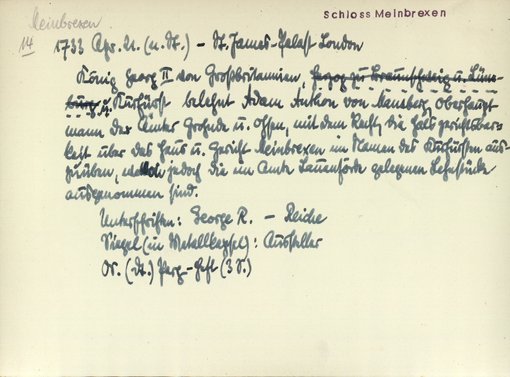 Meinbrexen
Schloss Meinbrexen
14
1733 Apr. 21. (n. St.) - St. James-Palast-London
König Georg II von Großbritannien, Herzog zu Braunschweig u. Lüne-
burg u. Kurfürst belehnt Adam Anton von Mansberg, Oberhaupt-
mann der Ämter Grohnde u. Ohsen, mit dem Recht, die Halsgerichtsbar-
keit über das Haus u. Gericht Meinbrexen im Namen des Kurfürsten aus-
zuüben, jedoch die im Amte Lauenförde gelegenen Lehnstücke
ausgenommen sind.
Unterschriften: George R. - Reiche
Siegel (in Metallkapsel): Aussteller
Or. (dt.) Perg-Heft (3 S.)